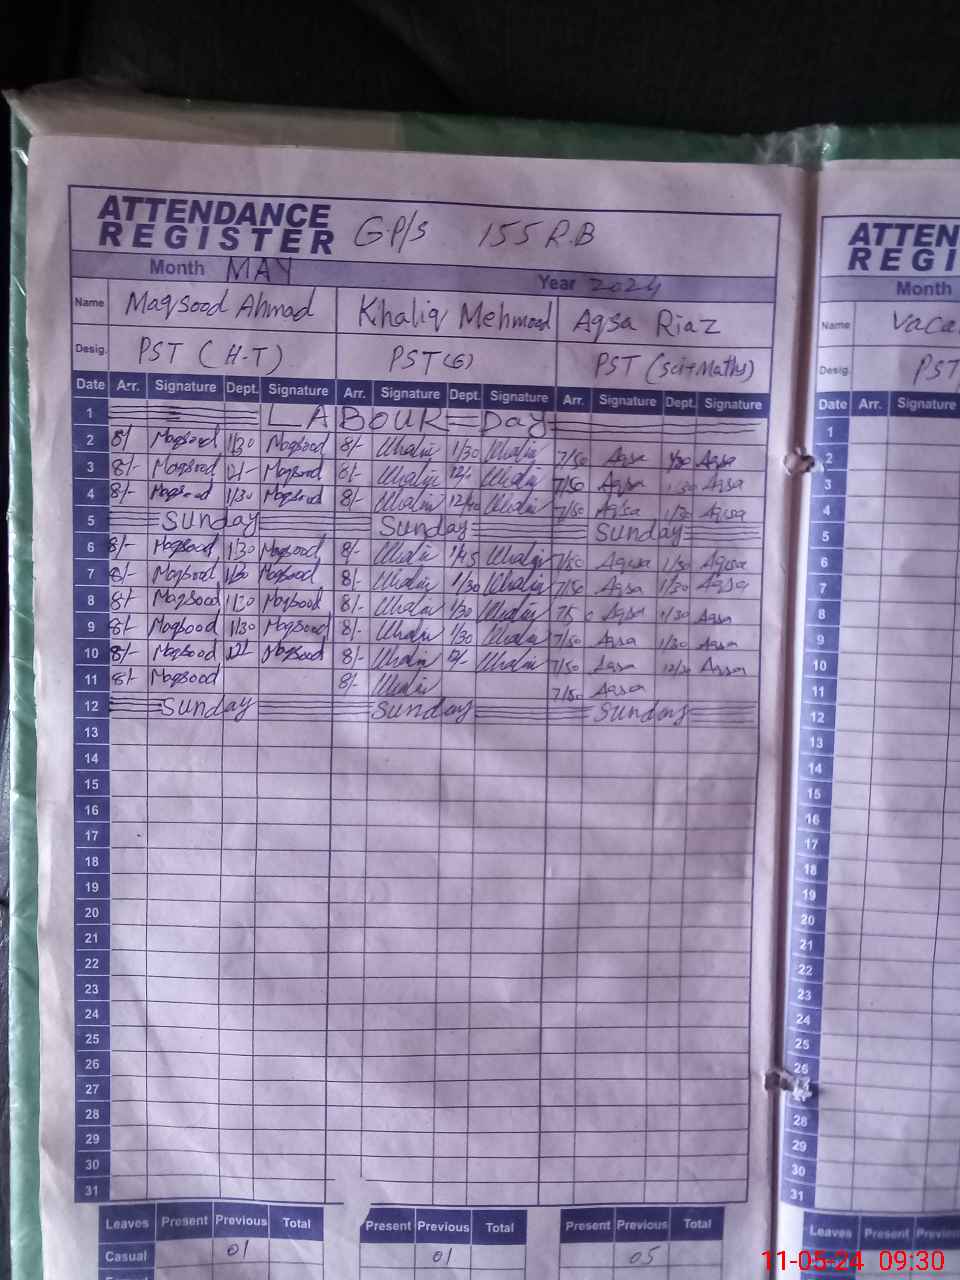 ATTENDANCE REGISTER G.P/S 155 R.B
Month MAY Year 2024
Name Maqsood Ahmad Khaliq Mehmood Aqsa Riaz
Desig. PST (H-T) PST (G) PST (sci+Maths)
Date Arr. Signature Dept. Signature Arr. Signature Dept. Signature Arr. Signature Dept. Signature
1 LABOUR Day
2 8/- Maqsood 1/30 Maqsood 8/- 1/30 7/50 Aqsa Aqsa
3 8/- Maqsood 12/- Maqsood 8/- 12/- 7/50 Aqsa Aqsa
4 8/- Maqsood 1/30 Maqsood 8/- 7/50 Aqsa 1/30 Aqsa
5 Sunday Sunday Sunday
6 8/- Maqsood 1/30 Maqsood 8/- 1/45 7/50 Aqsa 1/30 Aqsa
7 8/- Maqsood 1/30 Maqsood 8/- 1/30 7/50 Aqsa 1/30 Aqsa
8 8/- Maqsood 1/30 Maqsood 8/- 1/30 7/50 Aqsa 1/30 Aqsa
9 8/- Maqsood 1/30 Maqsood 8/- 1/30 7/50 Aqsa 1/30 Aqsa
10 8/- Maqsood 12/- Maqsood 8/- 12/- 7/50 Aqsa 12/30 Aqsa
11 8/- Maqsood 8/- 7/50 Aqsa
12 Sunday Sunday Sunday
13
14
15
16
17
18
19
20
21
22
23
24
25
26
27
28
29
30
31
Leaves Present Previous Total Present Previous Total Present Previous Total
Casual 01 01 05
ATTEN
REGI
Month
Name Vaca
Desig. PST
Date Arr. Signature
1
2
3
4
5
6
7
8
9
10
11
12
13
14
15
16
17
18
19
20
21
22
23
24
25
26
28
29
30
31
Leaves Present Previous
11-05-24 09:30